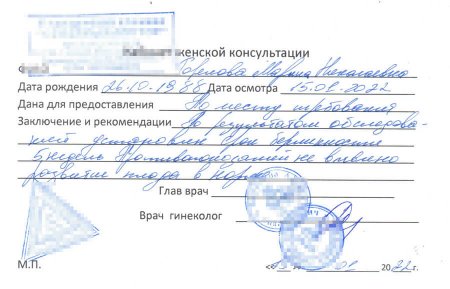 женской консультации
Ф.И.О. Горелова Марина Николаевна
Дата рождения 26.10.1988 Дата осмотра 15.01.2022
Дана для предоставления По месту требования
Заключение и рекомендации По результатам обследова-
ний установлен срок беременности
5 недель Противопоказаний не выявлено
развитие плода в норме
Глав врач
Врач гинеколог
М.П. 15 01 2022г.